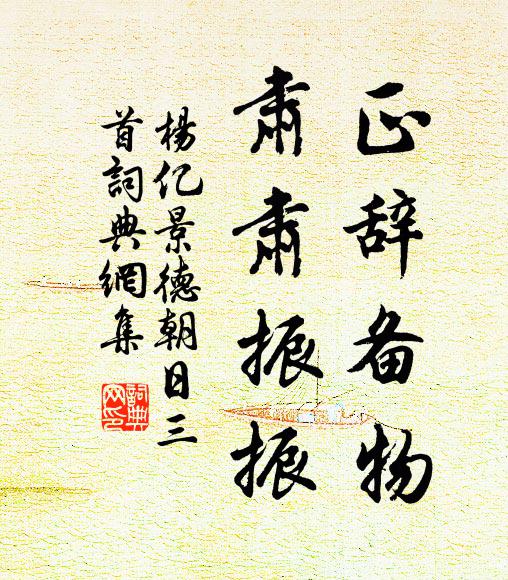 正辞备物
肃肃振振
楊亿景德朝日三
首詞典網集
詞典
网印